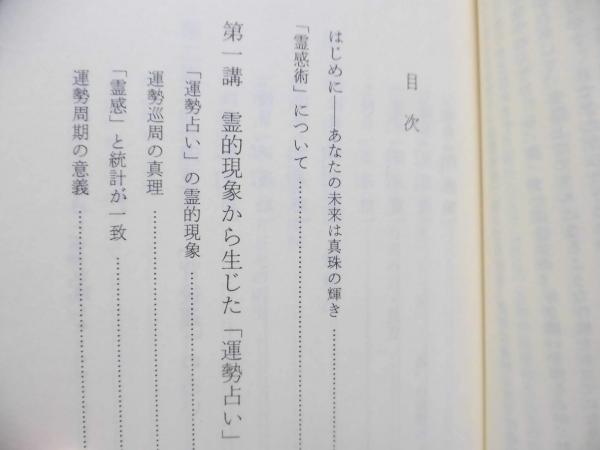 目次
はじめに――あなたの未来は真珠の輝き…………
「霊感術」について…………………
第一講　霊的現象から生じた「運勢占い」
「運勢占い」の霊的現象…………………
運勢巡周の真理…………………
「霊感」と統計が一致…………………
運勢周期の意義…………………